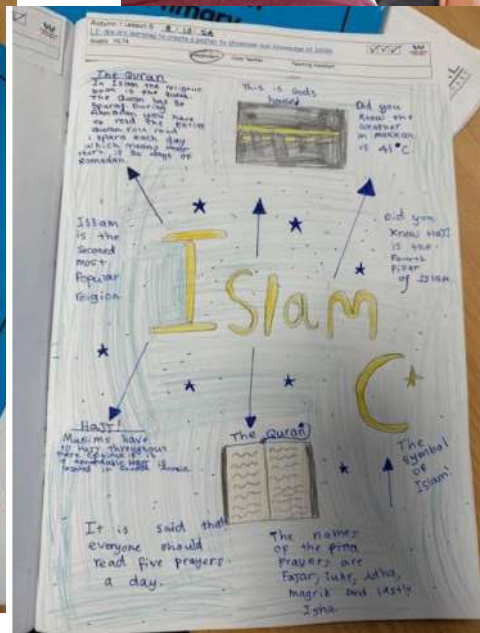 Autumn 1 Lesson 6
L.I. We are learning to create a poster to showcase our knowledge of Islam
The Quran
In Islam the religious
book is the Quran
the Quran has 30
During
Ramadan you have
to read the entire
Quran
each day
which means
there is 30 days of
Ramadan.
This is Gods
house
Did you
know the
weather
in makkah
is 41°C.
Islam
is the
second
most
Popular
religion
Did you
know Hajj
is the
fourth
pillar
of Islam
Islam
Hajj!
Muslims have
to Hajj throughout
there lifetime if it is
located in
The Quran
The
symbol
of
Islam!
It is said that
everyone should
read five prayers
a day.
The names
of the
prayers are
Fajar,
magrib and lastly
Isha.